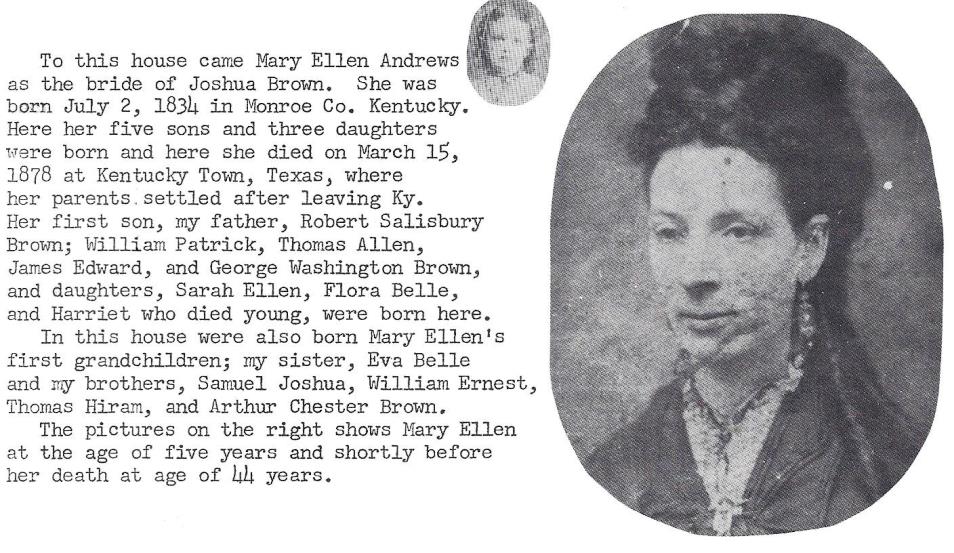 To this house came Mary Ellen Andrews
as the bride of Joshua Brown. She was
born July 2, 1834 in Monroe Co. Kentucky.
Here her five sons and three daughters
were born and here she died on March 15,
1878 at Kentucky Town, Texas, where
her parents settled after leaving Ky.
Her first son, my father, Robert Salisbury
Brown; William Patrick, Thomas Allen,
James Edward, and George Washington Brown,
and daughters, Sarah Ellen, Flora Belle,
and Harriet who died young, were born here.
In this house were also born Mary Ellen's
first grandchildren; my sister, Eva Belle
and my brothers, Samuel Joshua, William Ernest,
Thomas Hiram, and Arthur Chester Brown.
The pictures on the right shows Mary Ellen
at the age of five years and shortly before
her death at age of 44 years.